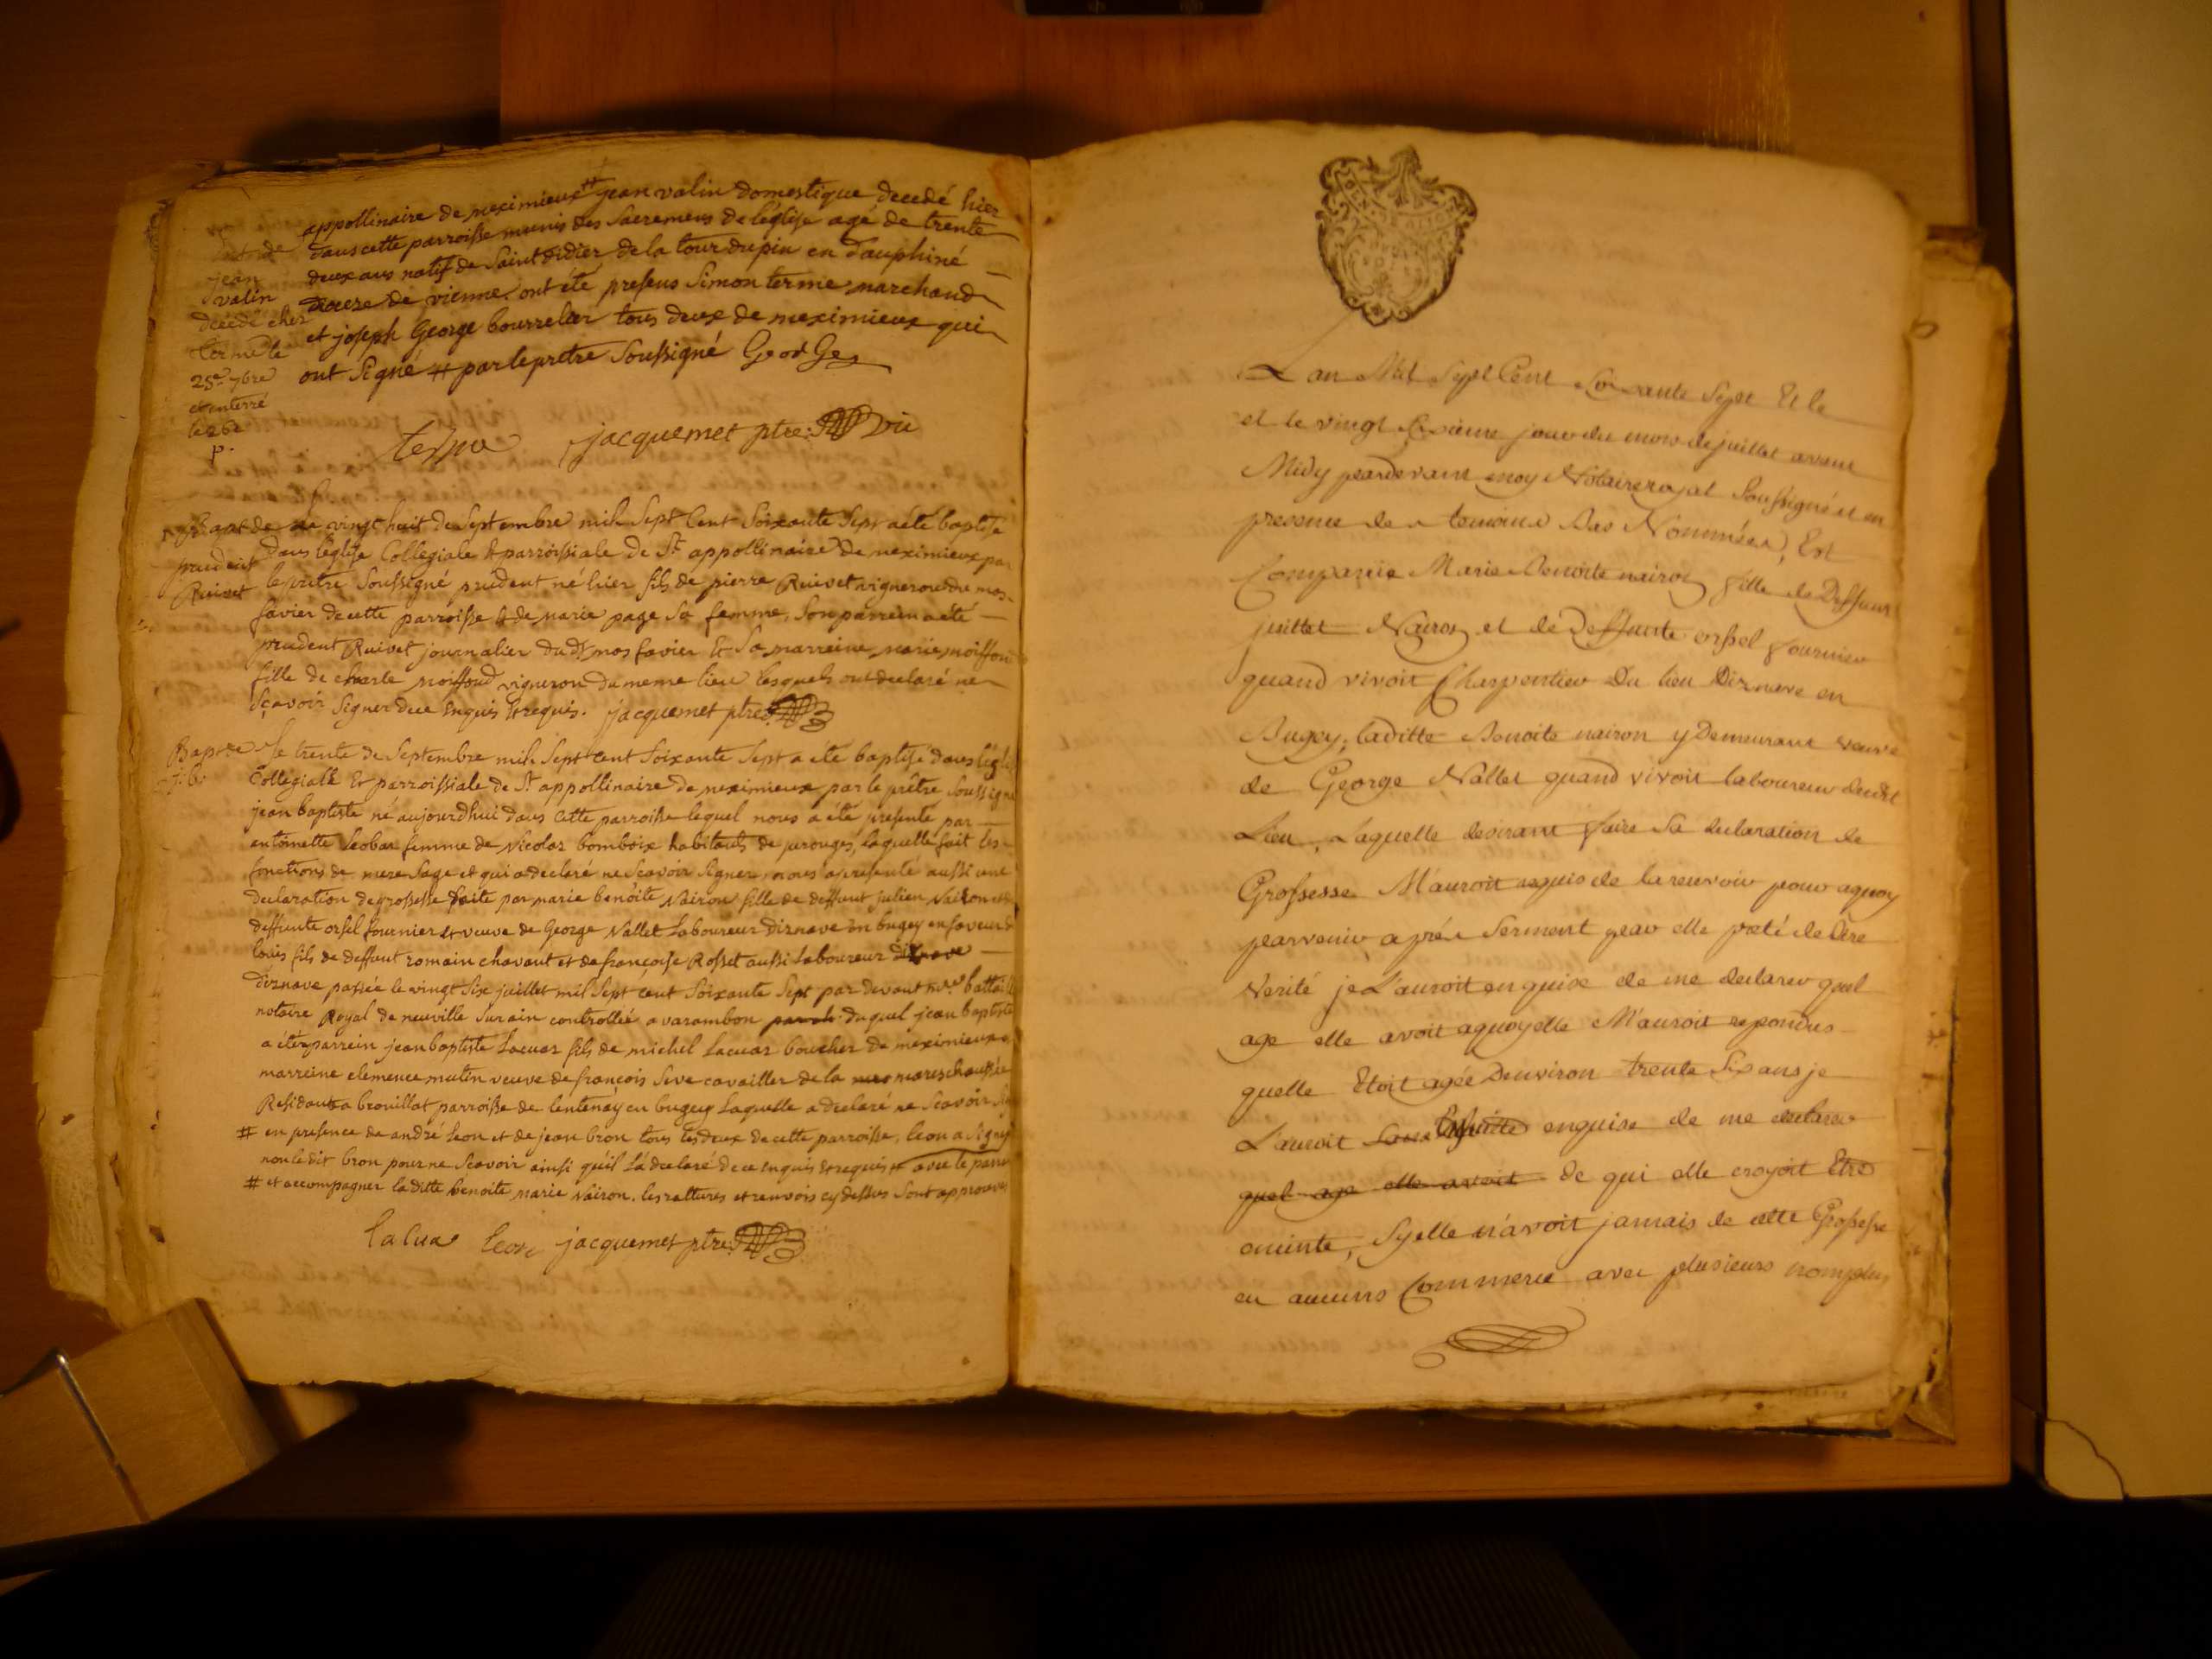 appollinaire de meximieux # jean valin domestique decedé hier
dans cette parroisse munis des Sacremens de l'église agé de trente
deux ans natif de Saint didier de la tour dupin en dauphiné
diocese de vienne. ont été presens Simon terme marchand
et joseph George bourrelier tous deux de meximieux qui
ont Signé # par le pretre Soussigné GeorGe
jean
valin
decedé cher
terme le
25e 7bre
et enterré
le 26e
p.
terme jacquemet ptre: vic
Bapt de
prudent
Ruivet
le vingt huit de Septembre mil Sept Cent Soixante Sept a été baptisé
dans l'église Collegiale & parroissiale de St appollinaire de meximieux par
le pretre Soussigné prudent né hier fils de pierre Ruivet vigneron du mos-
favier de cette parroisse & de marie page Sa femme, Son parrein a été
prudent Ruivet journalier dudt mos favier Et Sa marreine marie moiffond
fille de charle moiffond vigneron du meme lieu lesquels ont declaré ne
Sçavoir Signer de ce Enquis & requis. jacquemet ptre
Bapt de
j. b.
le trente de Septembre mil Sept cent Soixante Sept a été baptisé dans l'église
Collegiale Et parroissiale de St appollinaire de meximieux par le prêtre Soussigné
jean baptiste né aujourdhui dans cette parroisse lequel nous a été presenté par
antoinette Scobar femme de Nicolas bomboix habitants de perouges, laquelle fait les
fonctions de mere Sage et qui a declaré ne Scavoir Signer, nous a presenté aussi une
declaration de grossesse faite par marie benoite Nairon fille de deffunt julien Nairon et de
deffunte orsel fournier et veuve de George Nallet Laboureur diznave en bugey en faveur de
louis fils de deffunt romain chavant et de françoise Rosset aussi Laboureur
diznave passée le vingt Six juillet mil Sept cent Soixante Sept par devant me battail
notaire Royal de neuville Sur ain controllée a varambon par duquel jean baptiste
a été parrein jean baptiste Lacuas fils de michel Lacuas boucher de meximieux
marreine clemence mutin veuve de françois Seve cavailler de la mareschaussée
Residante a brouillat parroisse de lentenay en bugey Laquelle a declaré ne Scavoir
# en presence de andré Leon et de jean bron tous les deux de cette parroisse, leon a Signé
non ledit bron pour ne Scavoir ainsi qu'il l'a declaré de ce enquis & requis # avec le parrein
# et accompagner la ditte benoite marie Nairon. les rattures et renvois cy dessus Sont approuvés
laCua Leon jacquemet ptre
L an Mil Sept Cent Soixante Sept Et le
et le vingt Sixieme jour du mois de juillet avant
Midy pardevant moy Notaire royal Soussigné et en
presence des temoins bas Nommées, Est
Comparüe Marie Benoite nairon fille de Deffunt
juillet Nairon et de Deffunte orssel fournier
quand vivoit Charpentier Du lieu Diznave en
Bugey, laditte Benoite nairon y Demeurant veuve
de George Nallet quand vivoit laboureur dudit
Lieu, Laquelle desirant faire Sa declaration de
Grossesse M'auroit requis de la recevoir pour aquoy
parvenir aprés Serment par elle preté de Dire
Verité je L'auroit enquise de me declarer quel
age elle avoit aquoy elle M'auroit repondus
quelle Etoit agée Denviron trente Six ans je
L'auroit Ensuitte enquise de me declarer
quel age elle avoit de qui elle croyoit Etre
enceinte, Sy elle n'avoit jamais de cette Grossesse
eu aucuns Commerce avec plusieurs nomplus